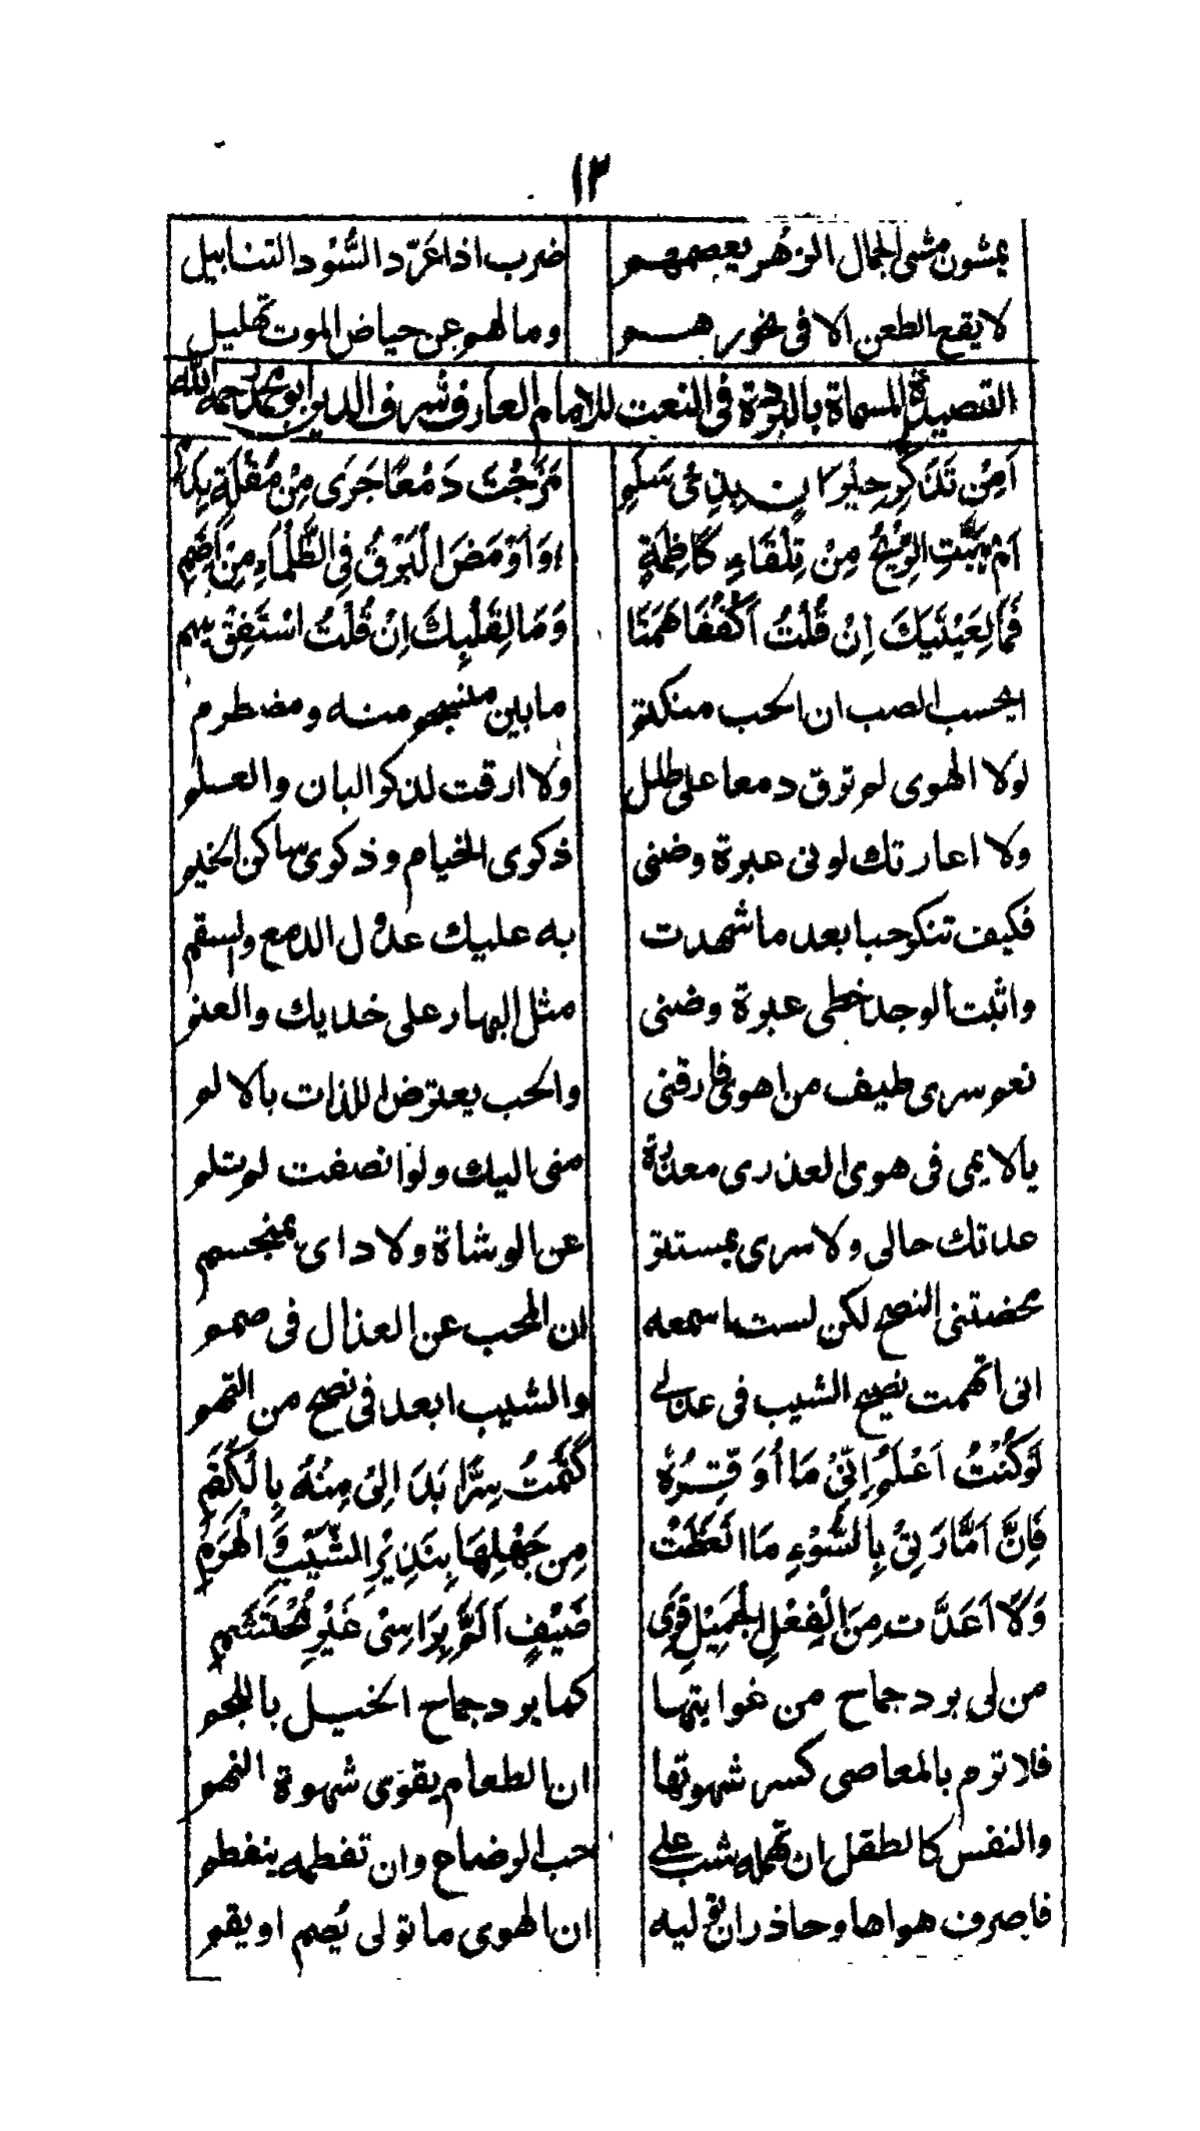 ١٣
يمشون مشى الجمال الزهر يعصمهم ضرب اذا عَرّد السُّود التنابيل
لا يقع الطعن الا فى نحورهم وما لهم عن حياض الموت تهليل
القصيدة المسماة بالبردة فى النعت للامام العارف شرف الدين ابو محمد رحمه الله
اَمِنْ تَذَكُّرِ جِيْرَانٍ بِذِىْ سَلَمٍ مَزَجْتَ دَمْعًا جَرَى مِنْ مُقْلَةٍ بِدَمٍ
اَمْ هَبَّتِ الرِّيْحُ مِنْ تِلْقَاءِ كَاظِمَةٍ وَاَوْمَضَ الْبَرْقُ فِى الظَّلْمَاءِ مِنْ اِضَمِ
فَمَا لِعَيْنَيْكَ اِنْ قُلْتُ اكْفُفَا هَمَتَا وَمَا لِقَلْبِكَ اِنْ قُلْتُ اسْتَفِقْ يَهِم
ايحسب الصب ان الحب منكتم ما بين منسجم منه ومضطرم
لولا الهوى لم ترق دمعا على طلل ولا ارقت لذكر البان والعلم
ولا اعارتك لونى عبرة وضنى ذكرى الخيام وذكرى ساكن الخيم
فكيف تنكر حبا بعد ما شهدت به عليك عدول الدمع والسقم
واثبت الوجد خطى عبرة وضنى مثل البهار على خديك والعنم
نعم سرى طيف من اهوى فارقنى والحب يعترض اللذات بالالم
يا لايمى فى هوى العذرى معذرة منى اليك ولو انصفت لم تلم
عداتك حالى ولا سرى بمستتر عن الوشاة ولا داى بمنجسم
محضتنى النصح لكن لست اسمعه ان المحب عن العذال فى صمم
انى اتهمت نصيح الشيب فى عذلى والشيب ابعد فى نصح من التهم
لَوْ كُنْتُ اَعْلَمُ اَنِّىْ مَا اُوَقِّرُهٗ كَتَمْتُ سِرًّا بَدَا لِىْ مِنْهُ بِالْكَتَمِ
فَاِنَّ اَمَّارَتِىْ بِالسُّوْءِ مَا اتَّعَظَتْ مِنْ جَهْلِهَا بِنَذِيْرِ الشَّيْبِ وَالْهَرَمِ
وَلَا اَعَدَّتْ مِنَ الْفِعْلِ الْجَمِيْلِ قِرٰى ضَيْفٍ اَلَمَّ بِرَاسِىْ غَيْرِ مُحْتَشَمِ
من لى برد جماح من غوايتها كما يرد جماح الخيل باللجم
فلا ترم بالمعاصى كسر شهوتها ان الطعام يقوى شهوة النهم
والنفس كالطفل ان تهمله شب على حب الرضاع وان تفطمه ينفطم
فاصرف هواها وحاذر ان توليه ان الهوى ما تولى يُصم او يقم